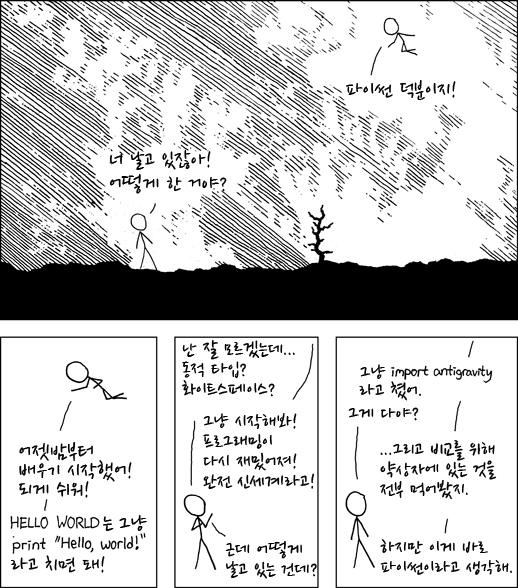 너 날고 있잖아!
어떻게 한 거야?
파이썬 덕분이지!
어젯밤부터
배우기 시작했어!
되게 쉬워!
HELLO WORLD는 그냥
print "Hello, world!"
라고 치면 돼!
난 잘 모르겠는데...
동적 타입?
화이트스페이스?
그냥 시작해봐!
프로그래밍이
다시 재밌어져!
완전 신세계라고!
근데 어떻게
날고 있는 건데?
그냥 import antigravity
라고 쳤어.
그게 다야?
...그리고 비교를 위해
약상자에 있는 것을
전부 먹어봤지.
하지만 이게 바로
파이썬이라고 생각해.